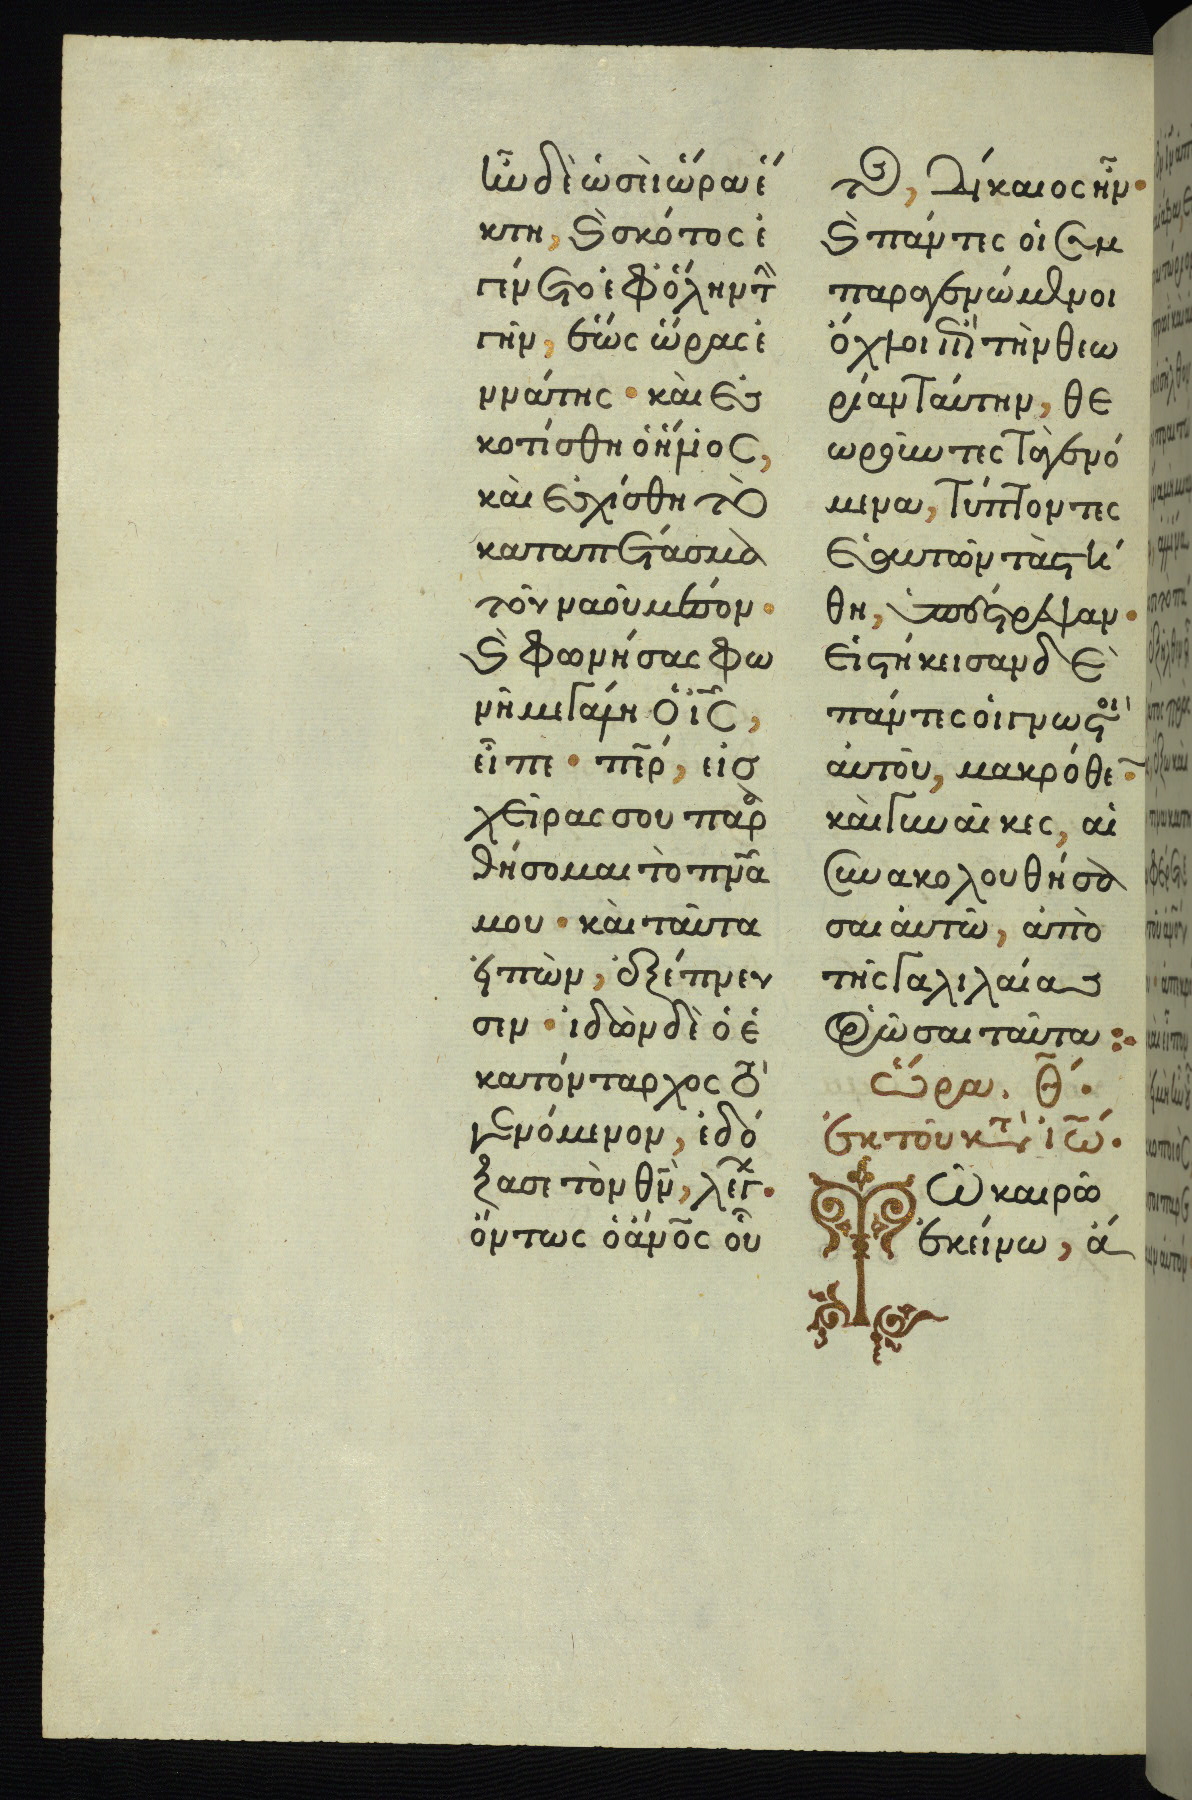 ἦν δὲ ὡσεὶ ὥρα ἕ
κτη, καὶ σκότος ἐ
γένετο ἐφ ὅλην τὴν
γῆν, ἕως ὥρας ἐ
ννάτης · καὶ ἐσ
κοτίσθη ὁ ἥλιος,
καὶ ἐσχίσθη τὸ
καταπέτασμα
τοῦ ναοῦ μέσον ·
καὶ φωνήσας φω
νῆ μεγάλη ὁ ις,
εἶπε · περ, εἰσ
χεῖρας σου παρα
θήσομαι τὸ πνα
μου · καὶ ταῦτα
εἰπὼν, ἐξέπνευ
σεν · ἰδὼν δὲ ὁ ἑ
κατόνταρχος τὸ
γενόμενον, ἐδό
ξασε τὸν θν, λέγ ·
ὄντως ὁ ἄνος οὗ
τος, δίκαιος ἦν ·
καὶ πάντες οἱ συμ
παραγενώμενοι
ὄχλοι ἐπὶ τὴν θεω
ρίαν ταύτην, θε
ωροῦντες τὰ γενό
μενα, τύπτοντες
ἑαυτῶν τὰ στή
θη, ὑπέστρεφαν ·
εἱστήκεισαν δὲ
πάντες οἱ γνωστοὶ
αὐτοῦ, μακρόθε ·
καὶ γυναῖκες, αἱ
συνακολουθήσα
σαι αὐτῶ, ἀπὸ
τῆς Γαλιλαίας
ὁρῶσαι ταῦτα :·
Ὥρα. Θ΄.
ἐκ τοῦ κτ ἰω.
Τῶ καιρῶ
ἐκείνω, ἀ